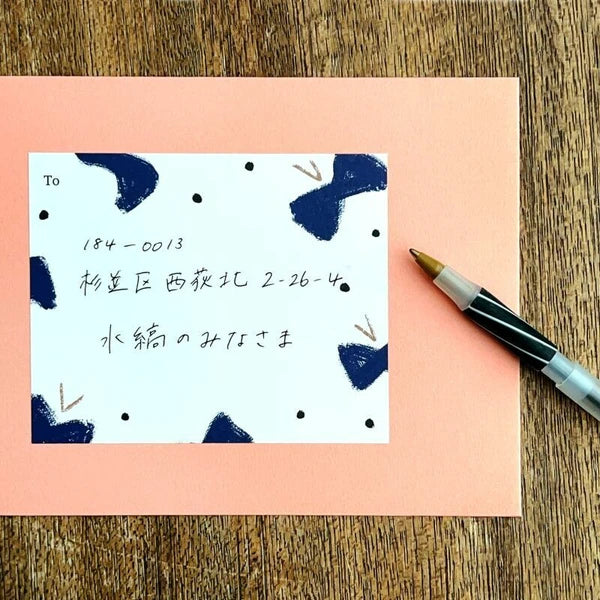 To
184-0013
杉並区西荻北 2-26-4
水縞のみなさま